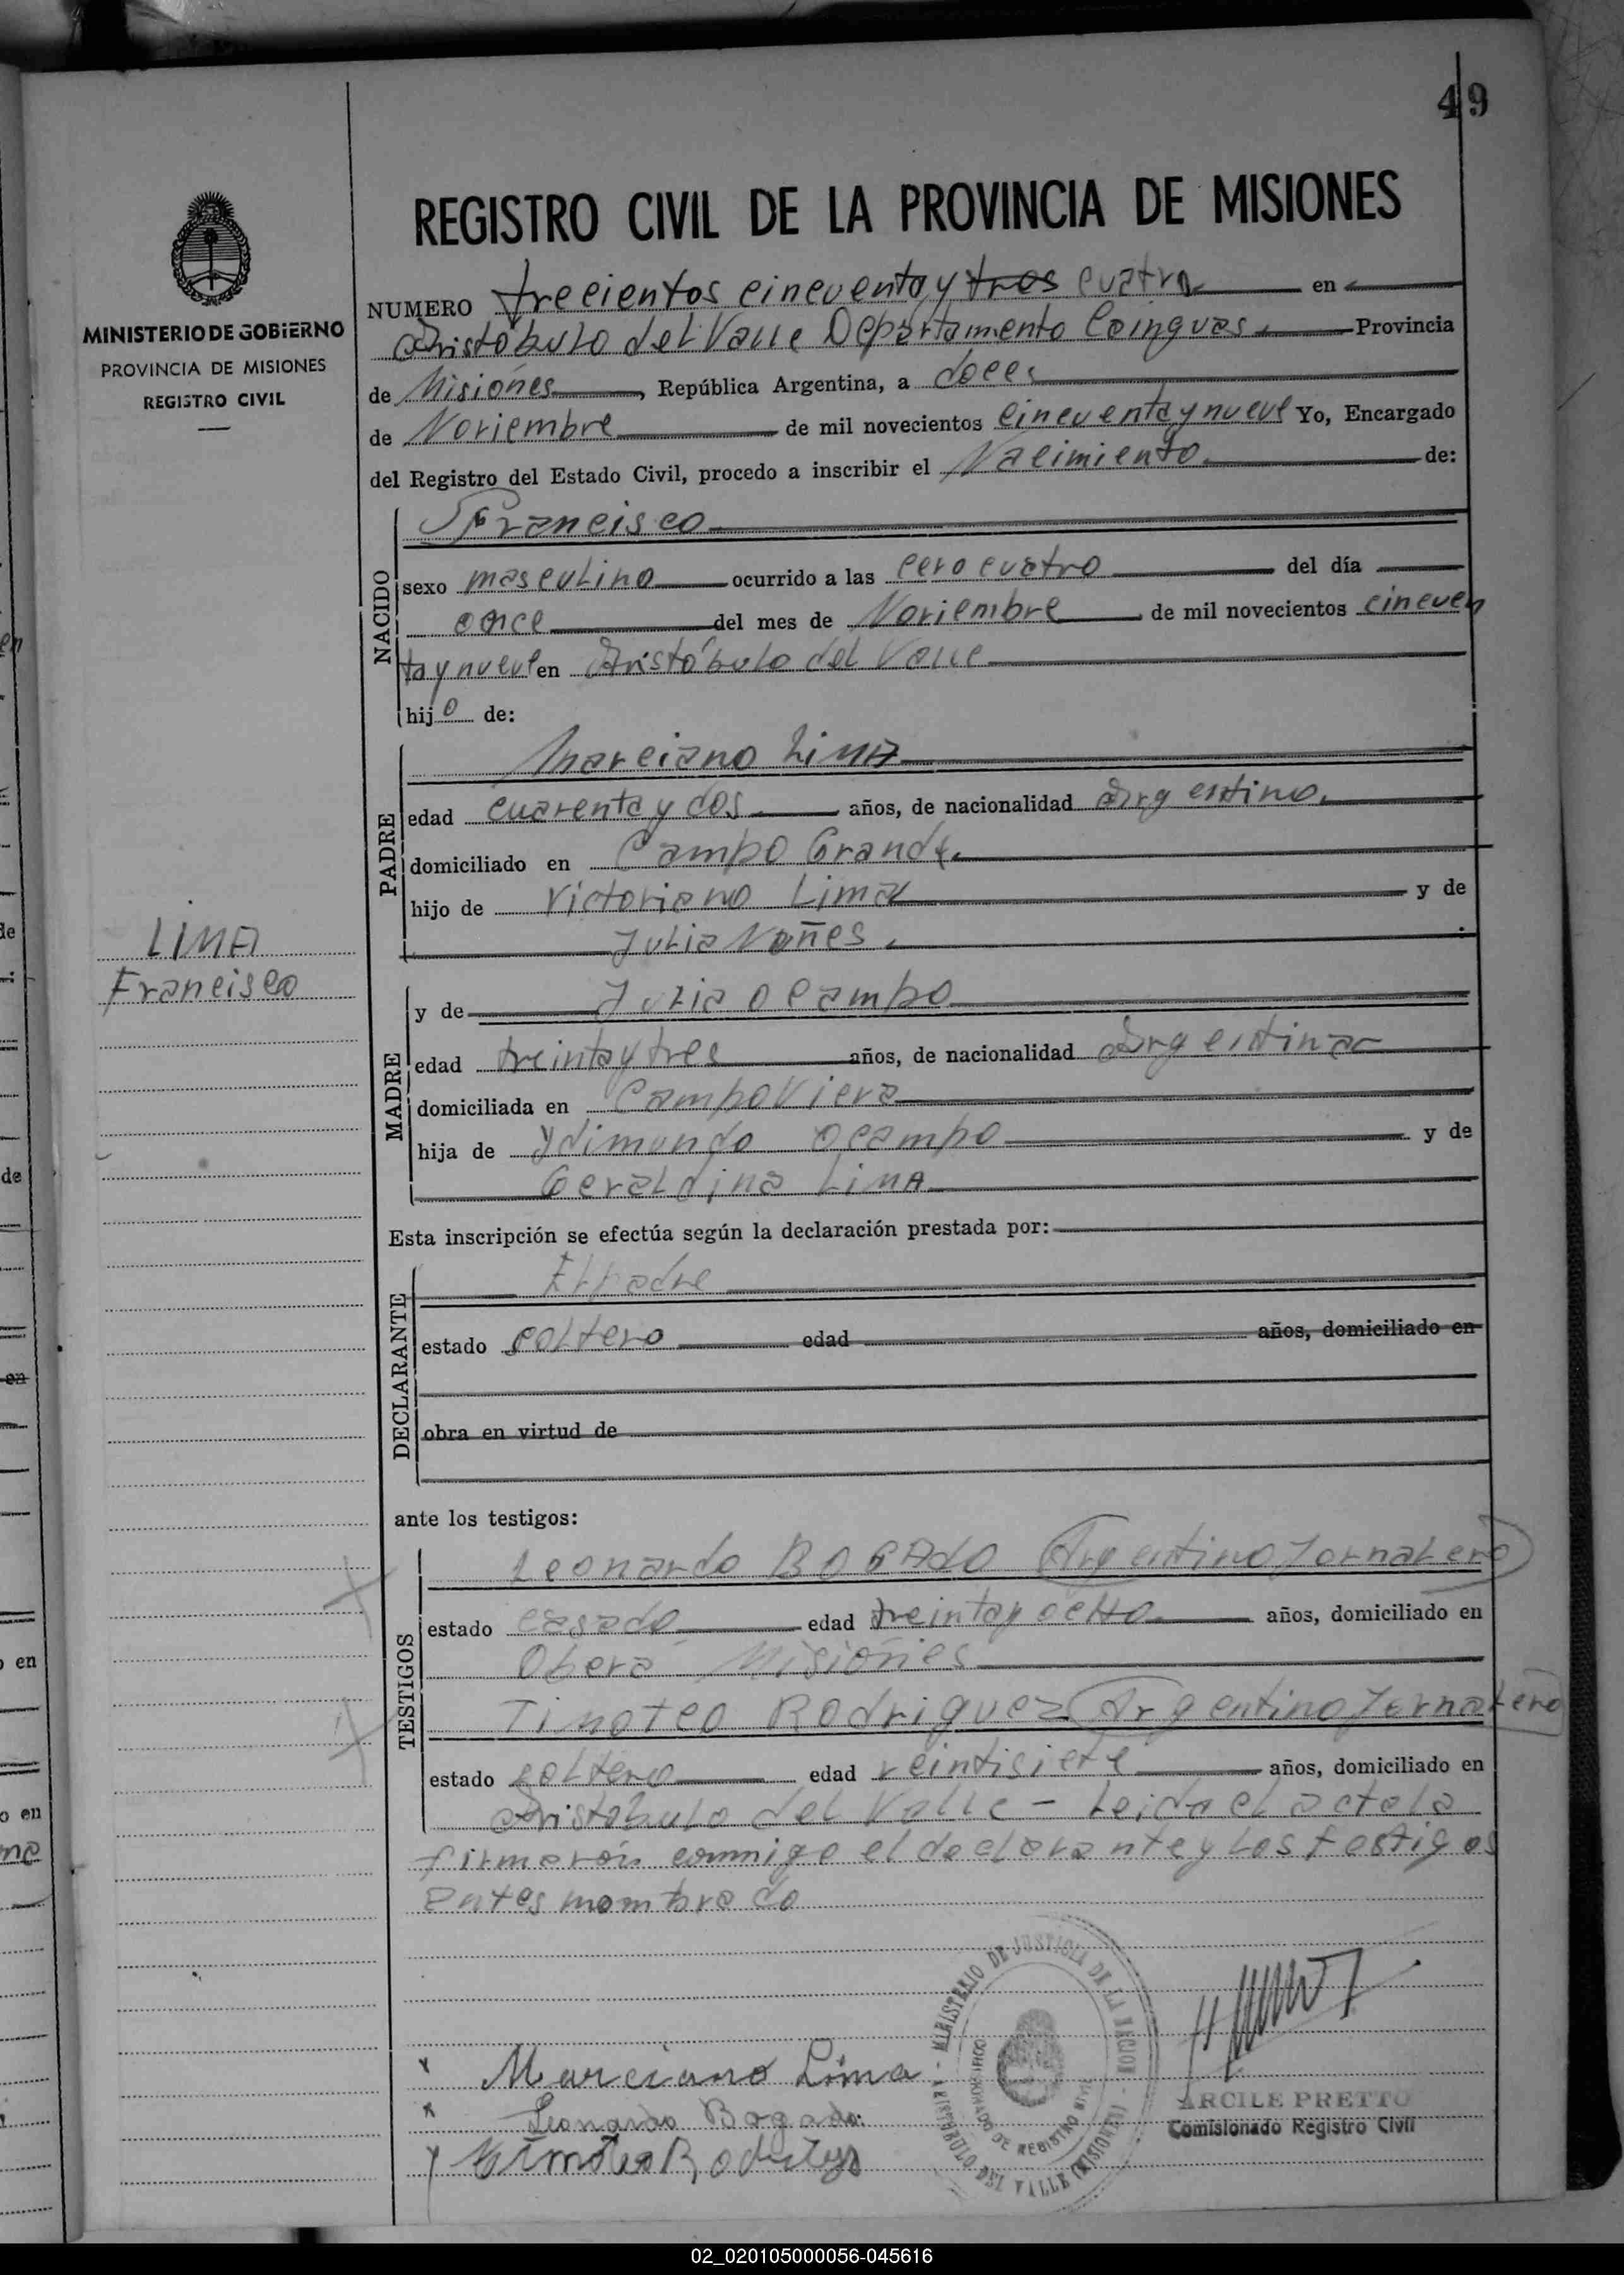 49
REGISTRO CIVIL DE LA PROVINCIA DE MISIONES
MINISTERIO DE GOBIERNO
PROVINCIA DE MISIONES
REGISTRO CIVIL
NUMERO trecientos cincuenta y tres cuatro en
Aristóbulo del Valle Departamento Cainguas. Provincia
de Misiones, República Argentina, a doce
de Noviembre de mil novecientos cincuenta y nueve Yo, Encargado
del Registro del Estado Civil, procedo a inscribir el Nacimiento de:
NACIDO
Francisco
sexo masculino ocurrido a las cero cuatro del día
once del mes de Noviembre de mil novecientos cincuen
ta y nueve en Aristóbulo del Valle
hijo de:
PADRE
Marciano LiMA
edad cuarenta y dos años, de nacionalidad Argentino.
domiciliado en Campo Grande.
hijo de Victoriano Lima y de
Julia Nuñes.
LIMA
Francisco
MADRE
y de Julia Ocampo
edad treinta y tres años, de nacionalidad Argentina
domiciliada en Campo Viera
hija de Ydimundo Ocampo y de
Geraldina LiMA
Esta inscripción se efectúa según la declaración prestada por:
DECLARANTE
El padre
estado soltero edad años, domiciliado en
obra en virtud de
ante los testigos:
TESTIGOS
Leonardo BOGADO Argentino Jornalero
estado casado edad treinta y ocho años, domiciliado en
Obera Misiónes
Timoteo Rodriguez Argentino Jornalero
estado soltero edad veintisiete años, domiciliado en
Aristobulo del Valle - Leida el acta la
firmarón conmigo el declarante y los testigos
antes mombrado
MINISTERIO DE JUSTICIA DE LA NACION
ARISTOBULO DEL VALLE (MISIONES)
DE REGISTRO CIVIL
Marciano Lima
Leonardo Bogado
ARCILE PRETTO
Comisionado Registro Civil
02_020105000056-045616